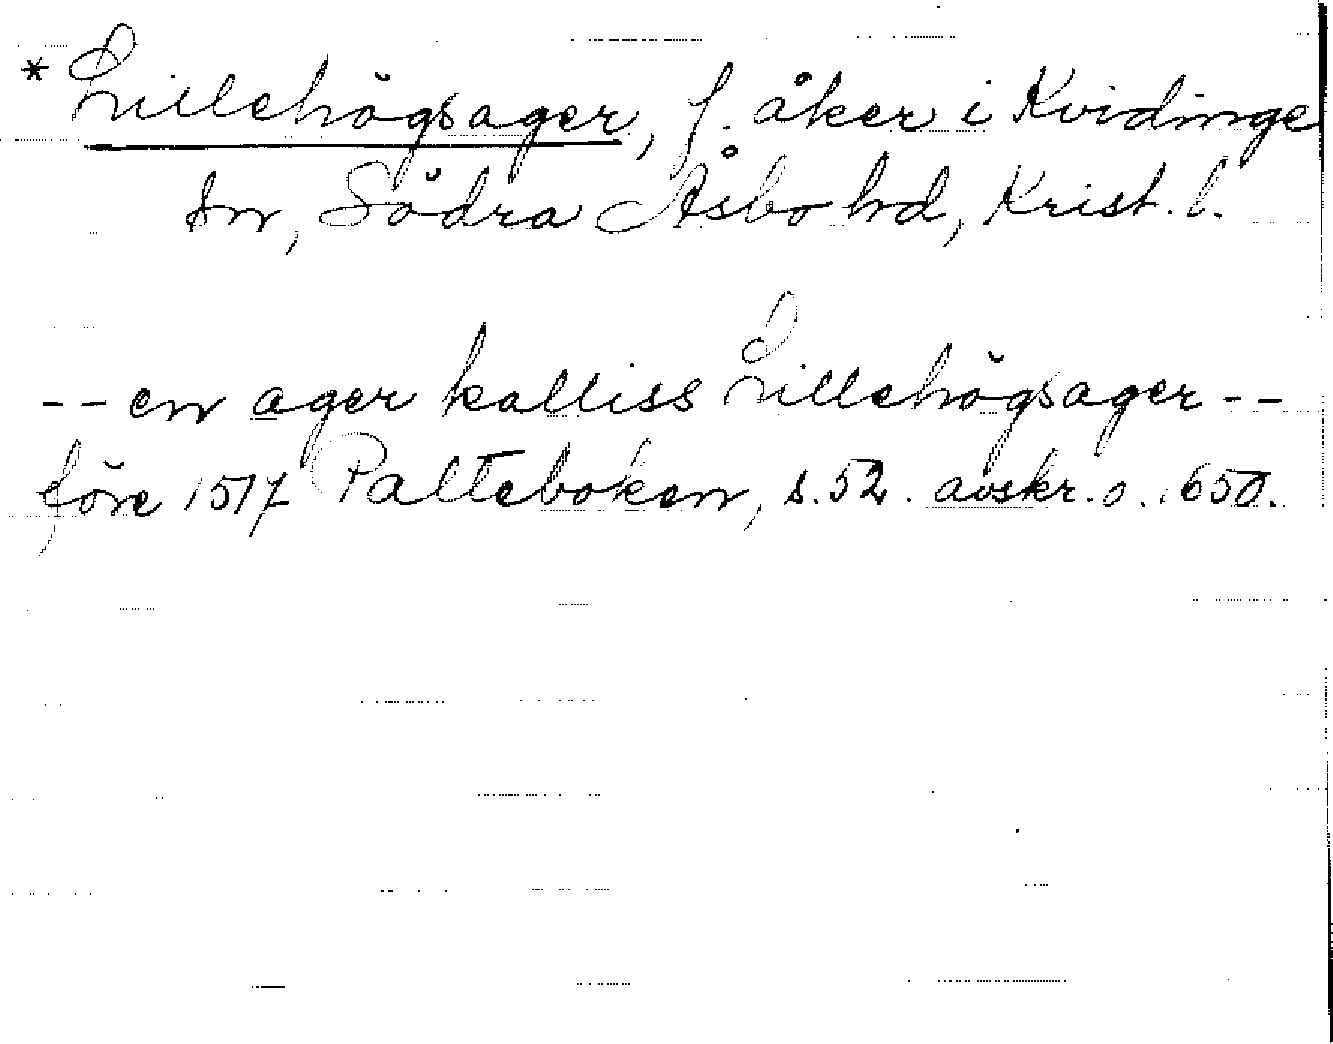 * Lillehögsager, f. åker i Kvidinge
sn, Södra Åsbo hd, Krist. l.
-- en ager kalliss Lillehögsager --
före 1517 Palteboken, s. 52. avskr. o. 1650.